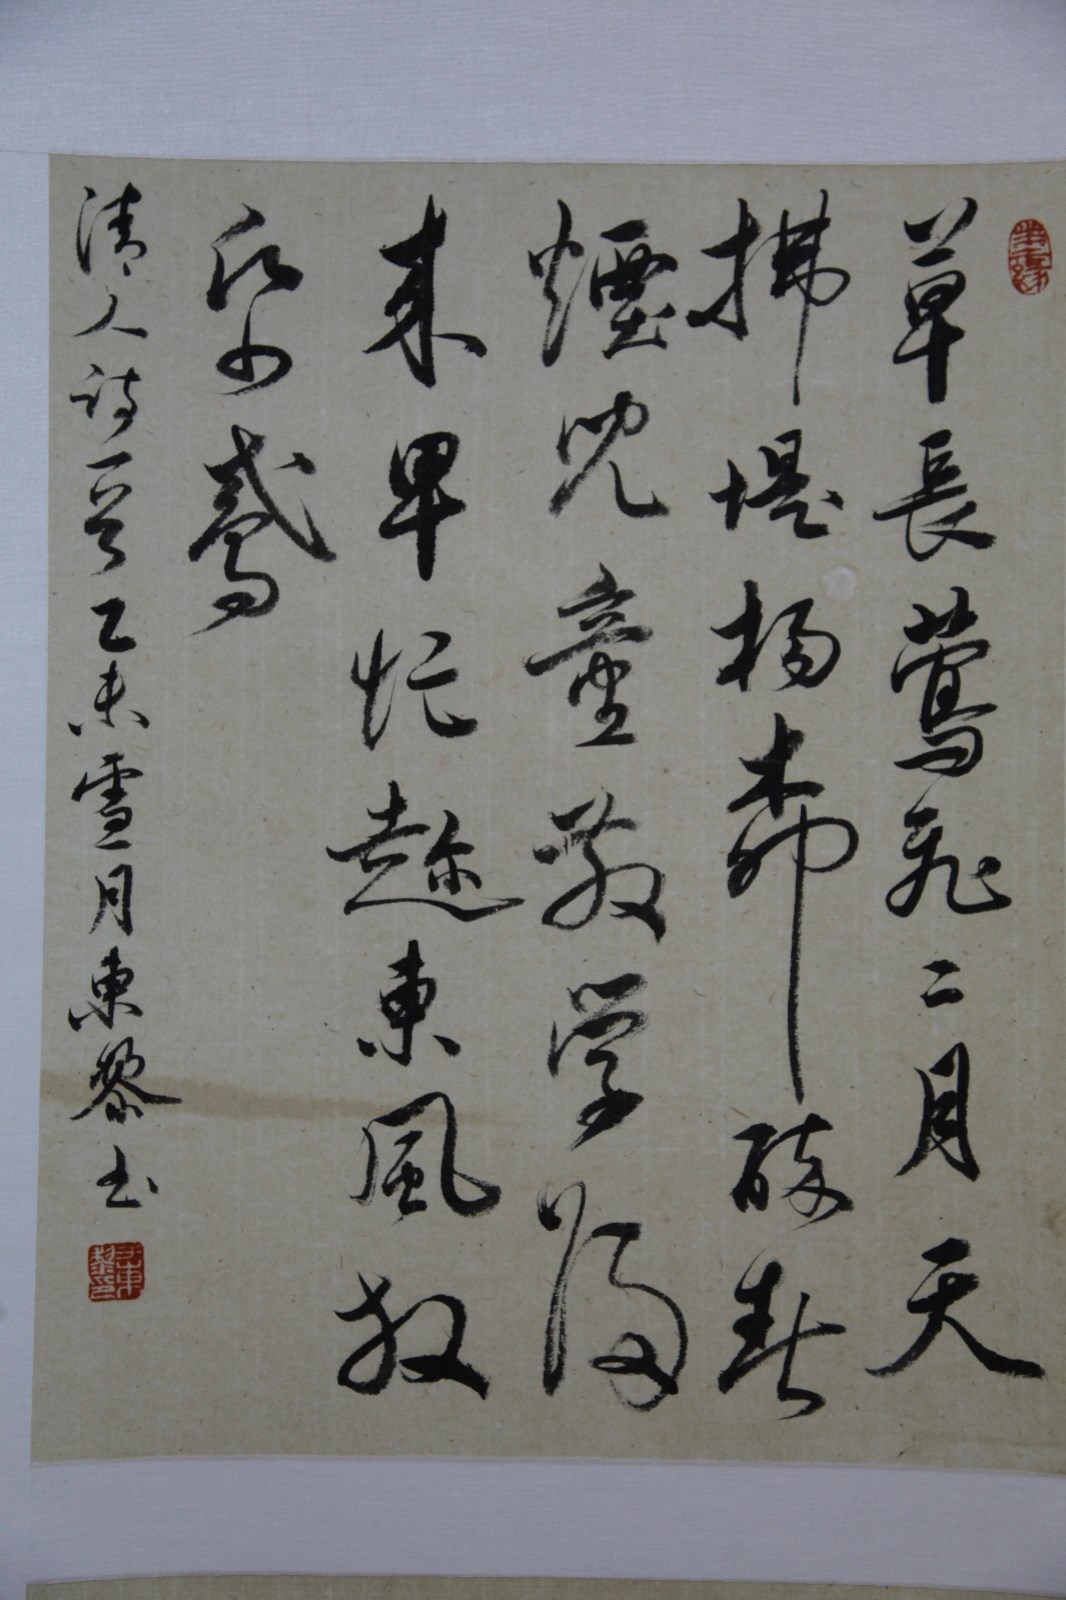 草長鶯飛二月天
拂堤楊柳醉春
煙兒童散學歸
來早忙趁東風放
紙鳶
清人詩一首乙未雪月東黎书